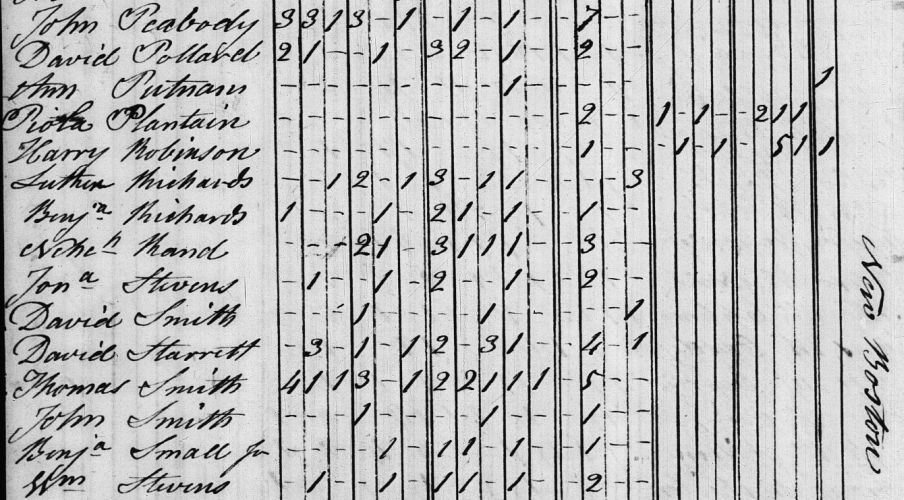 John Peabody 3 3 1 3 - 1 - 1 - 1 - - 7 - -
David Pollard 2 1 - - 1 - 3 2 - 1 - - 2 - -
Ann Putnam - - - - - - - - - 1 - - - - - 1
Plantain - - - - - - - - - - - - 2 - - 1 - 1 - - 2 1 1
Harry Robinson - - - - - - - - - - - - 1 - - - 1 - 1 - - 5 1 1
Luther Richards - - 1 2 - 1 3 - 1 1 - - - - 3
Benja Richards 1 - - - 1 - 2 1 - 1 - - 1 - -
Rand - - - 2 1 - 3 1 1 1 - - 3 - -
Jona Stevens - 1 - - 1 - 2 - - 1 - - 2 - -
David Smith - - - 1 - - - - 1 - - - - - 1
David Starrett - 3 - 1 - 1 2 - 3 1 - - 4 - 1
Thomas Smith 4 1 1 3 - 1 2 2 1 1 1 - 5 - -
John Smith - - - 1 - - - - 1 - - - 1 - -
Benja Small Jr - - - - 1 - 1 1 - 1 - - 1 - -
Wm Stevens - 1 - - 1 - 1 1 - 1 - - 2 - -
New Boston